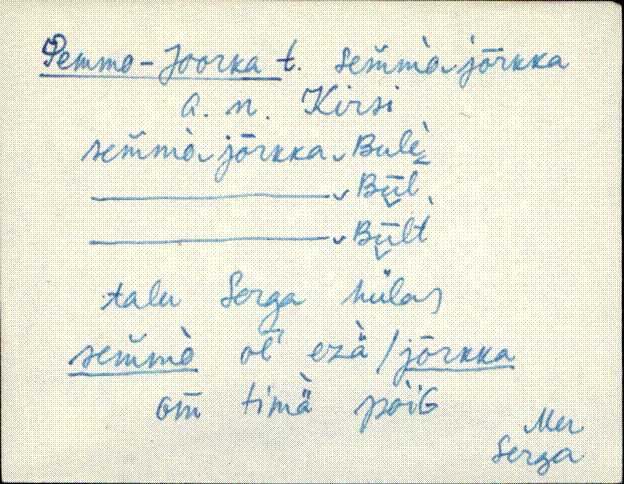 Semmo-Joorka t. sem̆mὸ jōrkka
a. n. Kirsi
sem̆mὸ jōrkka Bulè
————— Būl
————— Būlt
talu Serga külas
sem̆mὸ ol' ezä̀ / jōrkka
om̄ timä̀ pòiG
Mer
Serga